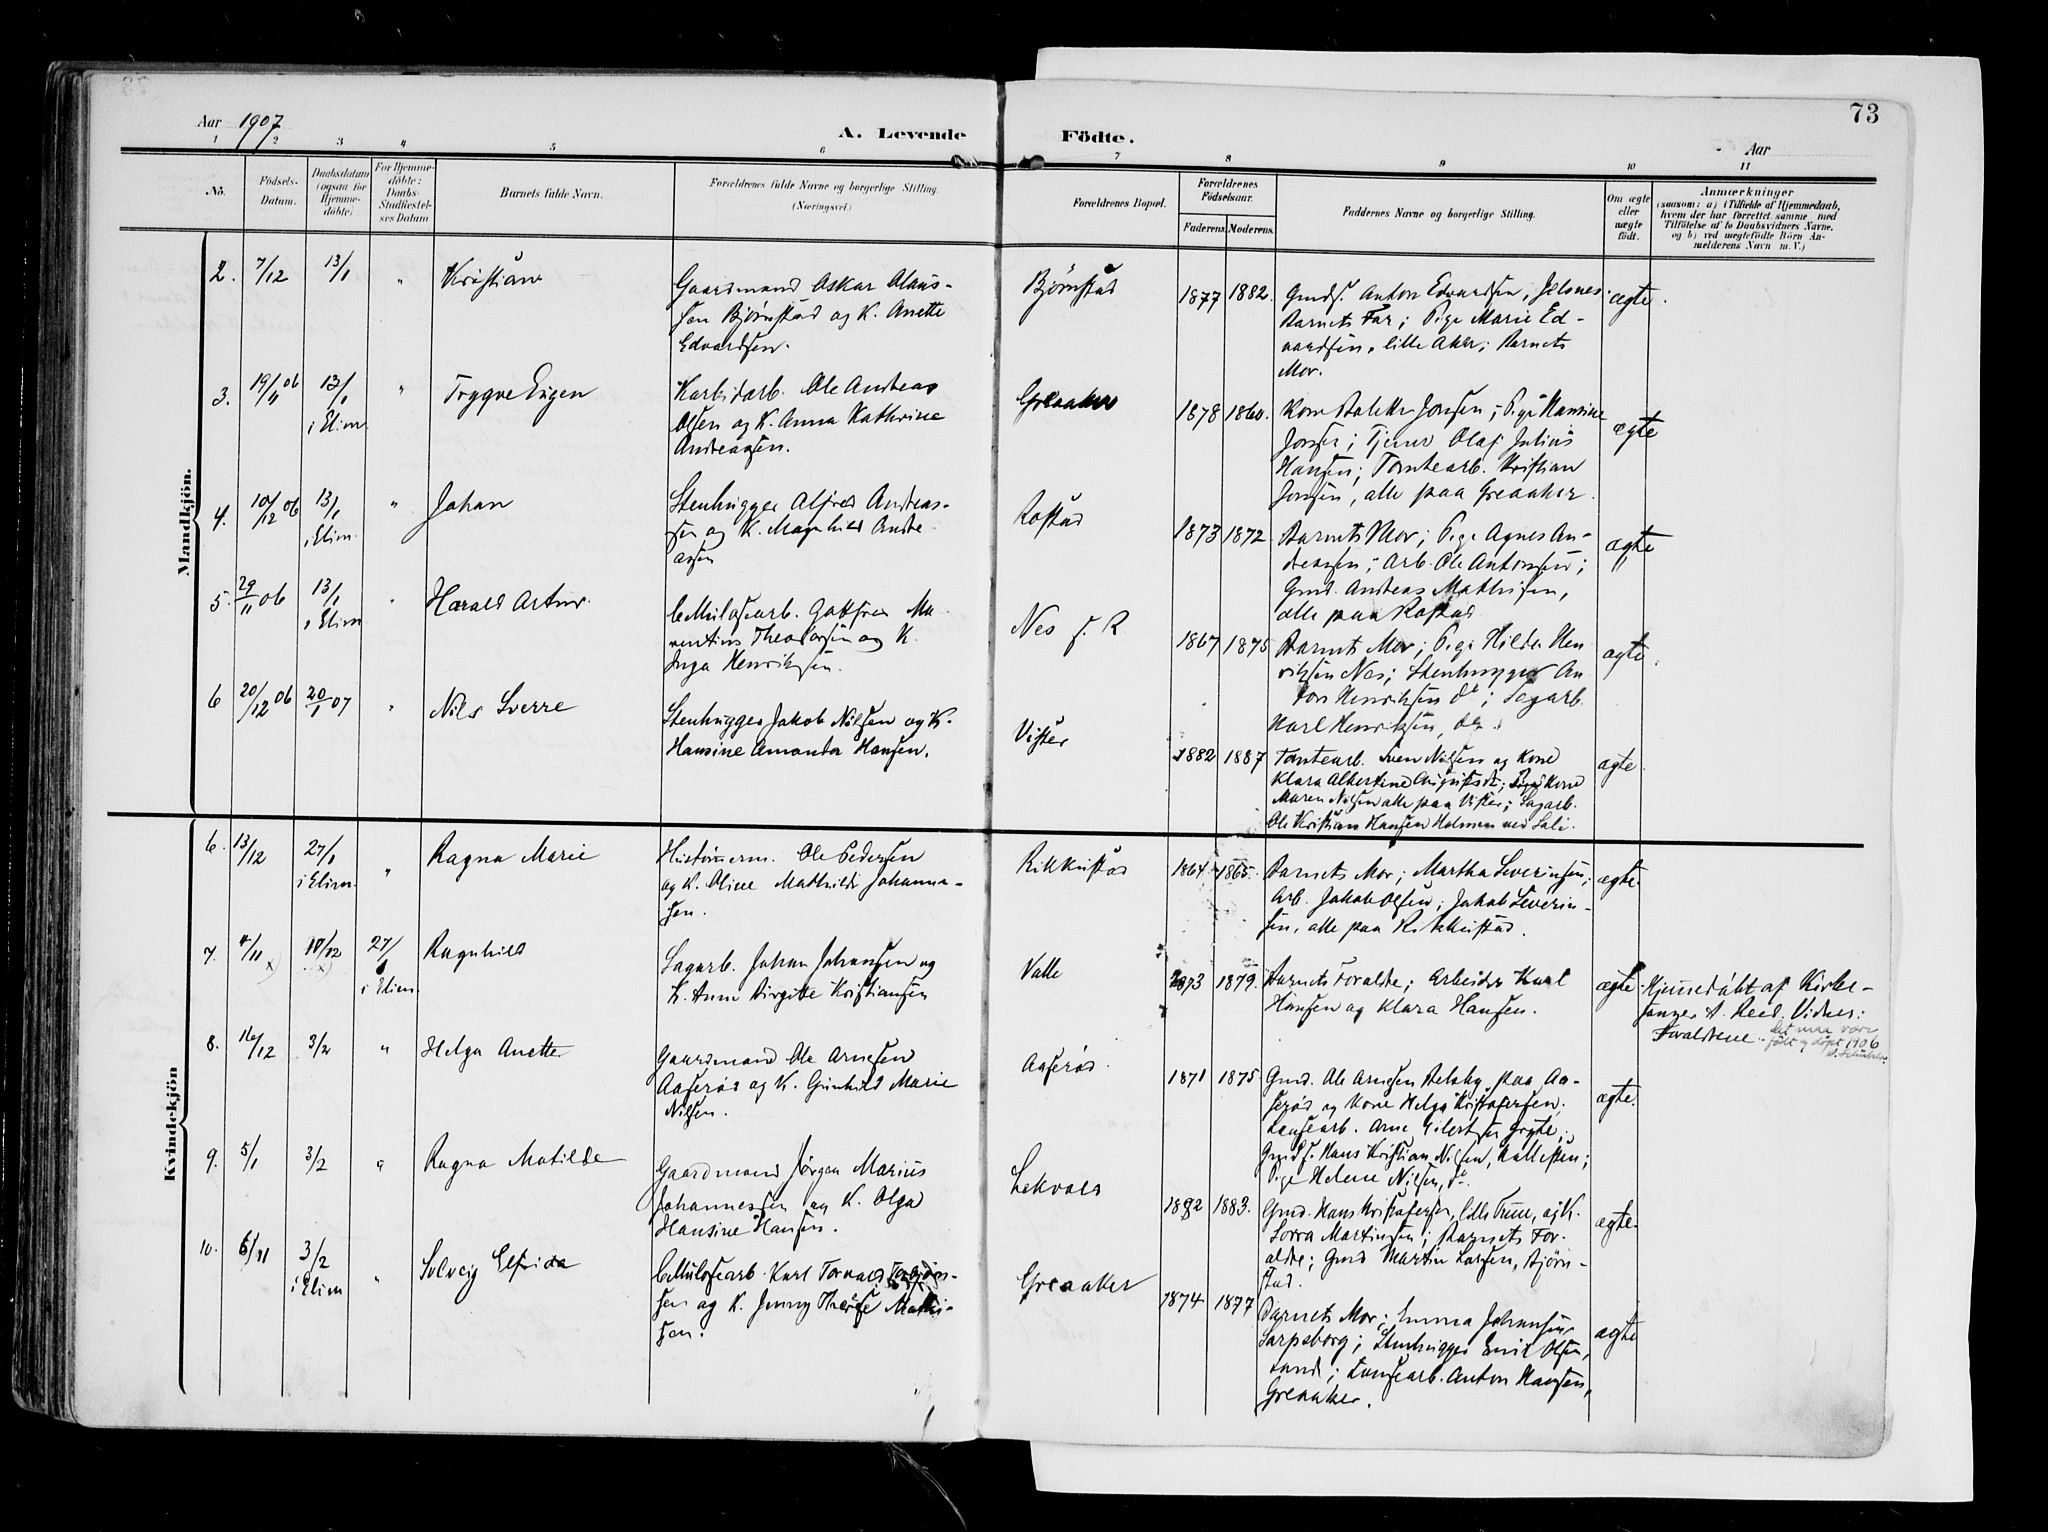 73
Aar 1907
A. Levende Födte.
Aar
1 2 3 4 5 6 7 8 9 10 11
No.
Födsels-
Datum.
Daabsdatum
(ogsaa for
Hjemme-
döbte)
For Hjemme-
döbte:
Daabs-
Stadfæstel-
ses Datum
Barnets fulde Navn.
Forældrenes fulde Navne og borgerlige Stilling
(Næringsvei.)
Forældrenes Bopæl.
Forældrenes
Födselsaar.
Faderens. Moderens.
Faddernes Navne og borgerlige Stilling.
Om ægte
eller
uægte
födt.
Anmærkninger
(saasom: a) i Tilfælde af Hjemmedaab,
hvem der har forrettet samme med
Tilföielse af to Daabsvidners Navne,
og b) ved uægtefödte Börn An-
melderens Navn m. V.)
Mandkjön.
2. 7/12 13/1 " Kristian
Gaardmand Oskar Olaus-
sen Bjørnstad og K. Anette
Edvardsen.
Bjørnstad
1877 1882.
Gmds. Anton Edvardsen, Jelsnes.
Barnets Far; Pige Marie Ed-
vardsen, lille Aker; Barnets
Mor.
ægte.
3. 19/11 06 13/1 i Elim. " Trygve Eugen
Karbidarb. Ole Andreas
Olsen og K. Anna Kathrine
Andreassen.
Greaaker
1878 1860.
Jonsen; Pige Hansine
Jonsen; Tjener Olaf Julius
Hansen; Tomtearb. Kristian
Jonsen, alle paa Greaaker.
ægte
4. 10/12 06 13/1 i Elim. " Johan
Stenhugger Alfred Andreas-
sen og K. Magnhild Andre-
assen
Rostad
1873 1872
Barnets Mor; Pige Agnes An-
dreasen; Arb. Ole Antonsen;
Gmd. Andreas Mathisen,
alle paa Rostad
ægte
5. 29/11 06 13/1 i Elim " Harald Artur.
Cellulosearb. Gotfred Ma-
rentius Theodorsen og K.
Inga Henriksen.
Nes s. R.
1867 1875
Barnets Mor; Pige Hilda Hen-
riksen Nes; Stenhugger An-
ton Henriksen do; Sagarb.
Karl Henriksen, do.
ægte.
6 20/12 06 20/1 07 " Nils Sverre
Stenhugger Jakob Nilsen og K.
Hansine Amanda Hansen.
Vister
1882 1887
Tomtearb. Sven Nilsen og Kone
Klara Albertine; Kone
Maren Nilsen alle paa Vister; Sagarb.
Ole Kristian Hansen Holmen ved Sali.
ægte
Kvindekjön
6. 13/12 27/1 i Elim. " Ragna Marie
Hustømerm. Ole Pedersen
og K. Oline Mathilde Johanne-
sen.
Rikkustad
1864 1865.
Barnets Mor; Martha Severinsen;
Arb. Jakob Olsen; Jakob Severin-
sen, alle paa Rikkustad.
ægte.
7. 4/11 x) 10/12 x) 27/1 i Elim. Ragnhild
Sagarb. Johan Johansen og
K. Anne Birgitte Kristiansen
Valle
1873 1879.
Barnets Forældre; Arbeider Karl
Hansen og Klara Hansen.
ægte.
Hjemmedøbt af Kirke-
sanger A. Reed. Vidner:
Forældrene.
Det maa være
født og døpt 1906
8. 16/12 3/2 " Helga Anette
Gaardmand Ole Arnesen
Aaserød og K. Gunhild Marie
Nilsen.
Aaserød.
1871 1875
Gmd. Ole Arnesen Delsby paa Aa-
serød og Kone Helga Kristofersen;
Landsearb. Arne Eilertsen Gryte;
Gmds. Hans Kristian Nilsen, Kallesten;
Pige Helene Nilsen, do.
ægte.
9. 5/1 3/2 " Ragna Matilde
Gaardmand Jørgen Marius
Johannessen og K. Olga
Hansine Hansen.
Lekvold
1882 1883.
Gmd. Hans Kristofersen, lille Tune, og K.
Lovra Martinsen; Barnets For-
ældre; Gmd Martin Larsen, Bjørn-
stad.
ægte.
10. 6/11 3/2 i Elim " Solveig Elfrida
Cellulosearb. Karl Torvald Torbjørn-
sen og K. Jenny Therese Mathi-
sen.
Greaaker
1874 1877
Barnets Mor; Emma Johansen
Sarpsborg; Stenhugger Emil Olsen,
Sand; Landsearb. Anton Hansen,
Greaaker.
ægte